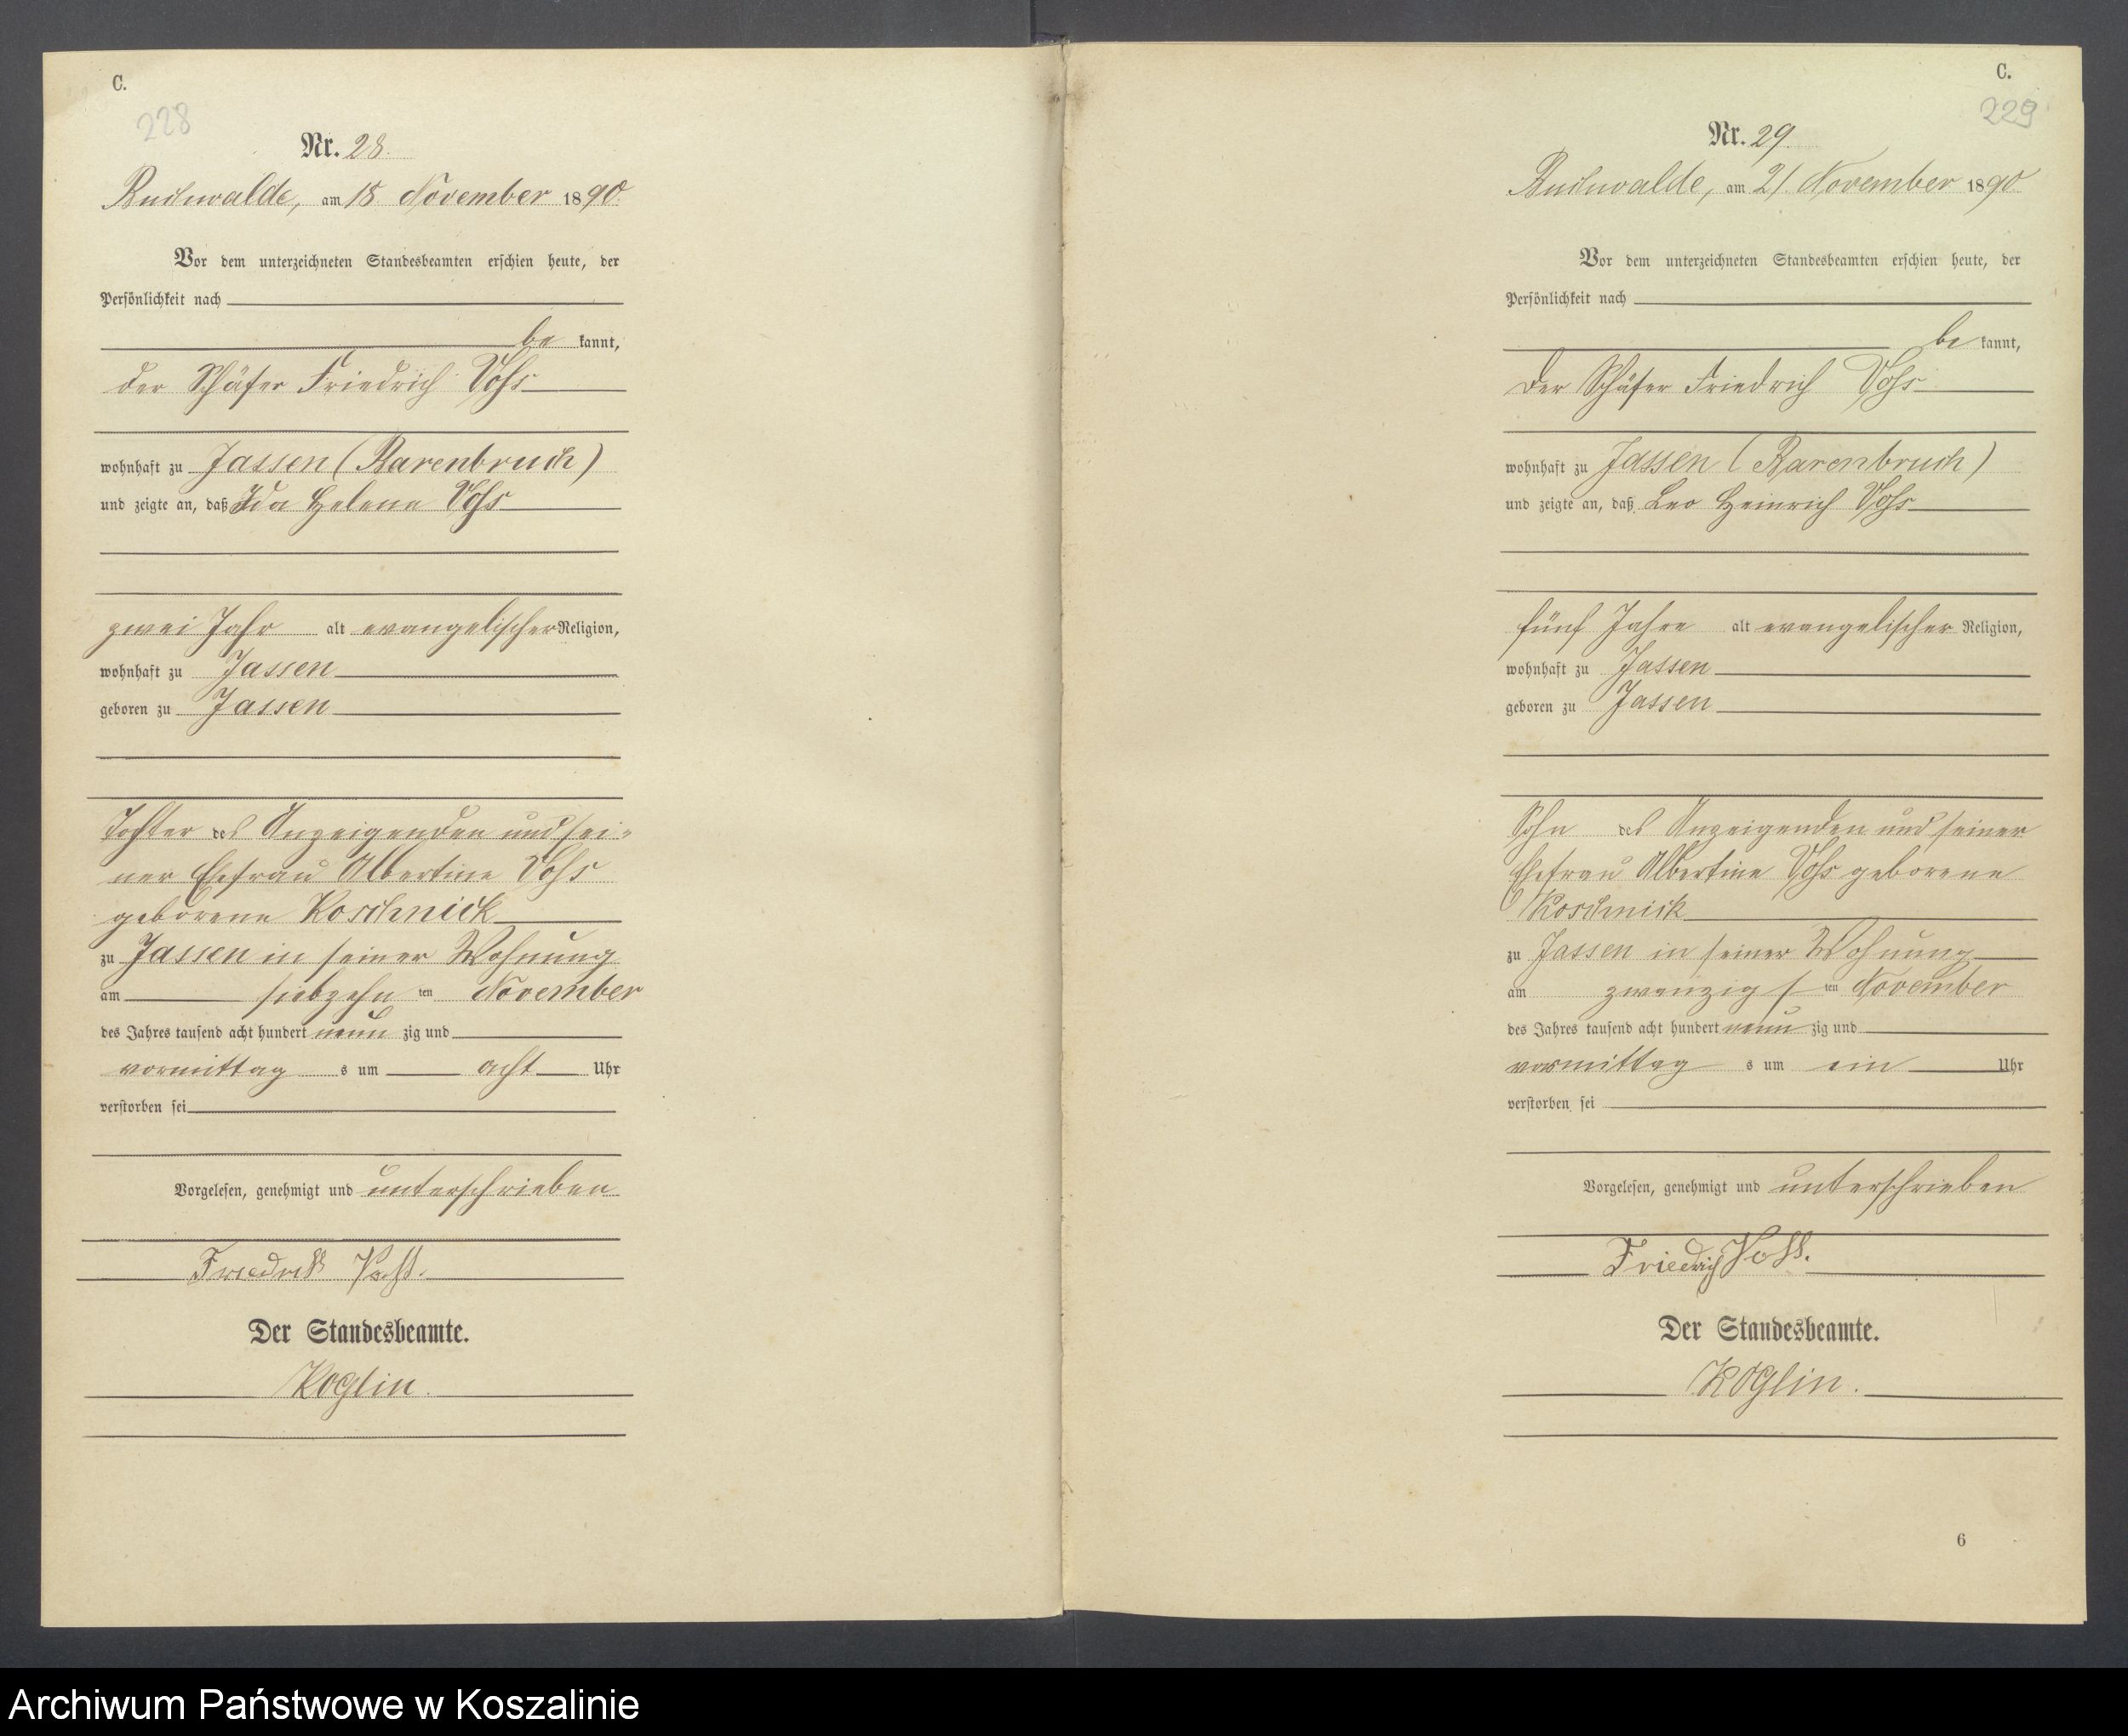 C.
228
Nr. 28.
Buchwalde, am 18 November 1890.
Vor dem unterzeichneten Standesbeamten erschien heute, der
Persönlichkeit nach
be kannt,
der Schäfer Friedrich Vohs
wohnhaft zu Jassen (Barenbruch)
und zeigte an, daß Ida Helene Vohs
zwei Jahr alt evangelischer Religion,
wohnhaft zu Jassen
geboren zu Jassen
Tochter des Anzeigenden und sei=
ner Ehefrau Albertine Vohs
geborene Koschnick
zu Jassen in seiner Wohnung
am siebzehn ten November
des Jahres tausend acht hundert neun zig und
vormittag s um acht Uhr
verstorben sei
Vorgelesen, genehmigt und unterschrieben
Friedrich
Der Standesbeamte.
Köglin.
C.
229
Nr. 29.
Buchwalde, am 21 November 1890
Vor dem unterzeichneten Standesbeamten erschien heute, der
Persönlichkeit nach
be kannt,
der Schäfer Friedrich Vohs
wohnhaft zu Jassen (Barenbruch)
und zeigte an, daß Leo Heinrich Vohs
fünf Jahre alt evangelischer Religion,
wohnhaft zu Jassen
geboren zu Jassen
Sohn des Anzeigenden und seiner
Ehefrau Albertine Vohs geborene
Koschnick
zu Jassen in seiner Wohnung
am zwanzig s ten November
des Jahres tausend acht hundert neun zig und
vormittag s um ein Uhr
verstorben sei
Vorgelesen, genehmigt und unterschrieben
Friedrich
Der Standesbeamte.
Köglin.
6
Archiwum Państwowe w Koszalinie